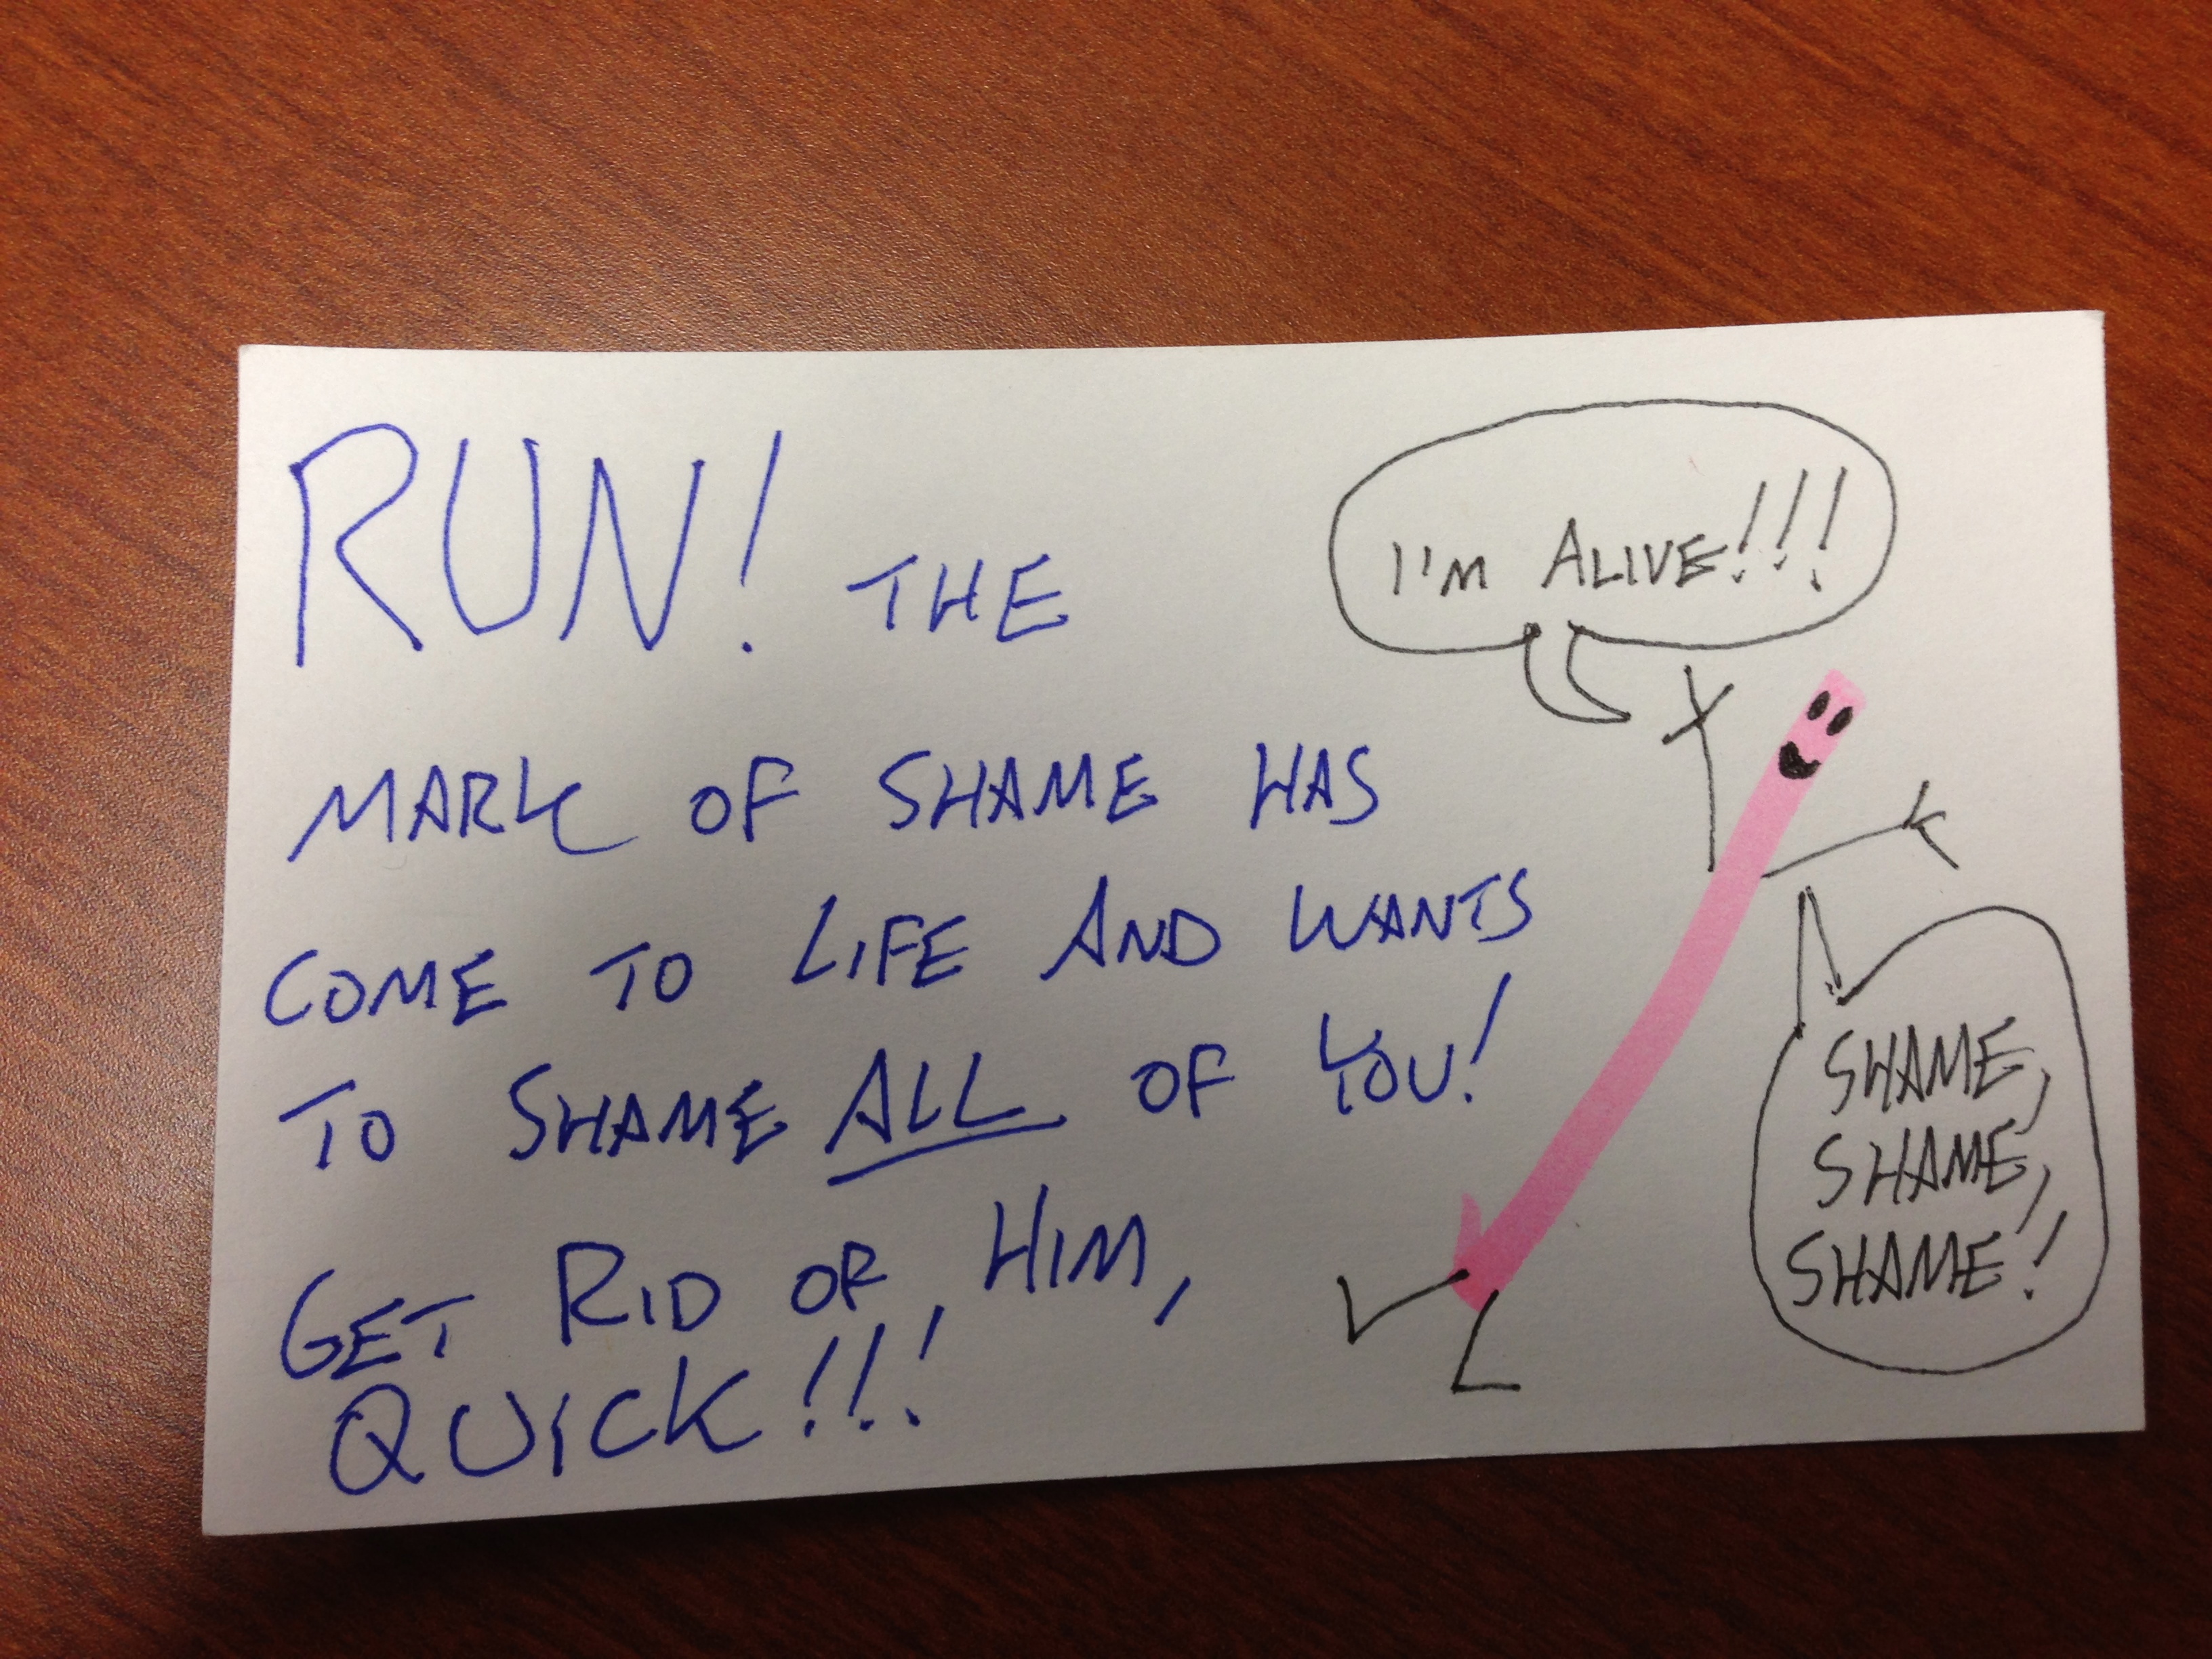 RUN! THE
MARK OF SHAME HAS
COME TO LIFE AND WANTS
TO SHAME ALL OF YOU!
GET RID OF HIM,
QUICK!!!
I'M ALIVE!!!
SHAME,
SHAME,
SHAME!